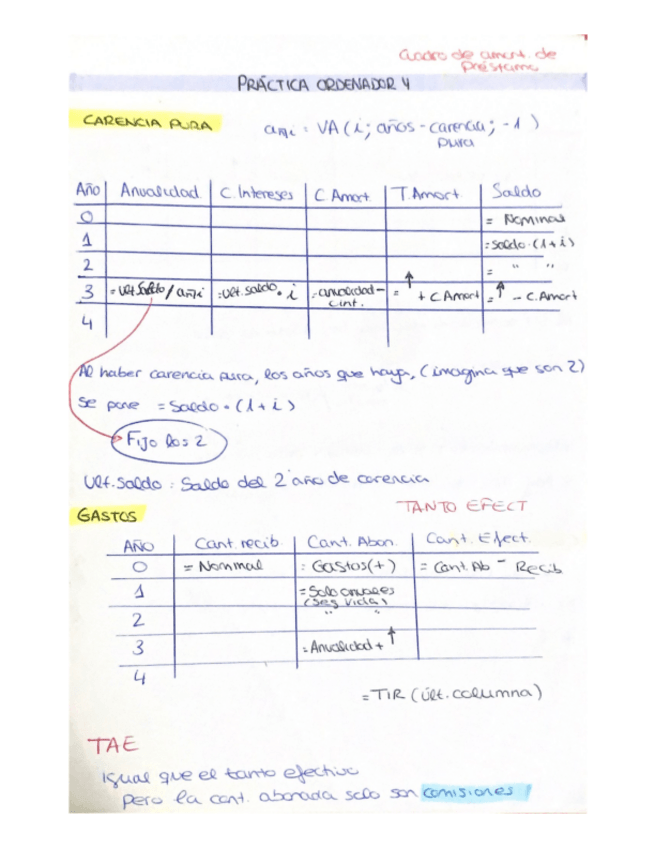 Cuadro de amort. de
Préstamo
PRÁCTICA ORDENADOR 4
CARENCIA PURA
an¬i = VA (i; años - carencia; -1)
pura
Año | Anualidad | C. Intereses | C Amort. | T. Amort | Saldo
0 = Nominal
1 = Saldo · (1+i)
2 = " "
3 = Ult. Saldo / an¬i = Ult. saldo · i = anualidad - c. int. = ↑ + C Amort = ↑ - C. Amort
4
Al haber carencia pura, los años que haya, (imagina que son 2)
se pone = Saldo · (1+i)
Fijo los 2
Ult. Saldo : Saldo del 2 año de carencia
GASTOS
TANTO EFECT
AÑO | Cant. recib. | Cant. Abon. | Cant. Efect.
0 = Nominal = Gastos (+) = Cant. Ab - Recib
1 = Solo anuales
(Seg. Vida)
2 " "
3 = Anualidad + ↑
4
= TIR (últ. columna)
TAE
igual que el tanto efectivo
pero la cant. abonada solo son comisiones